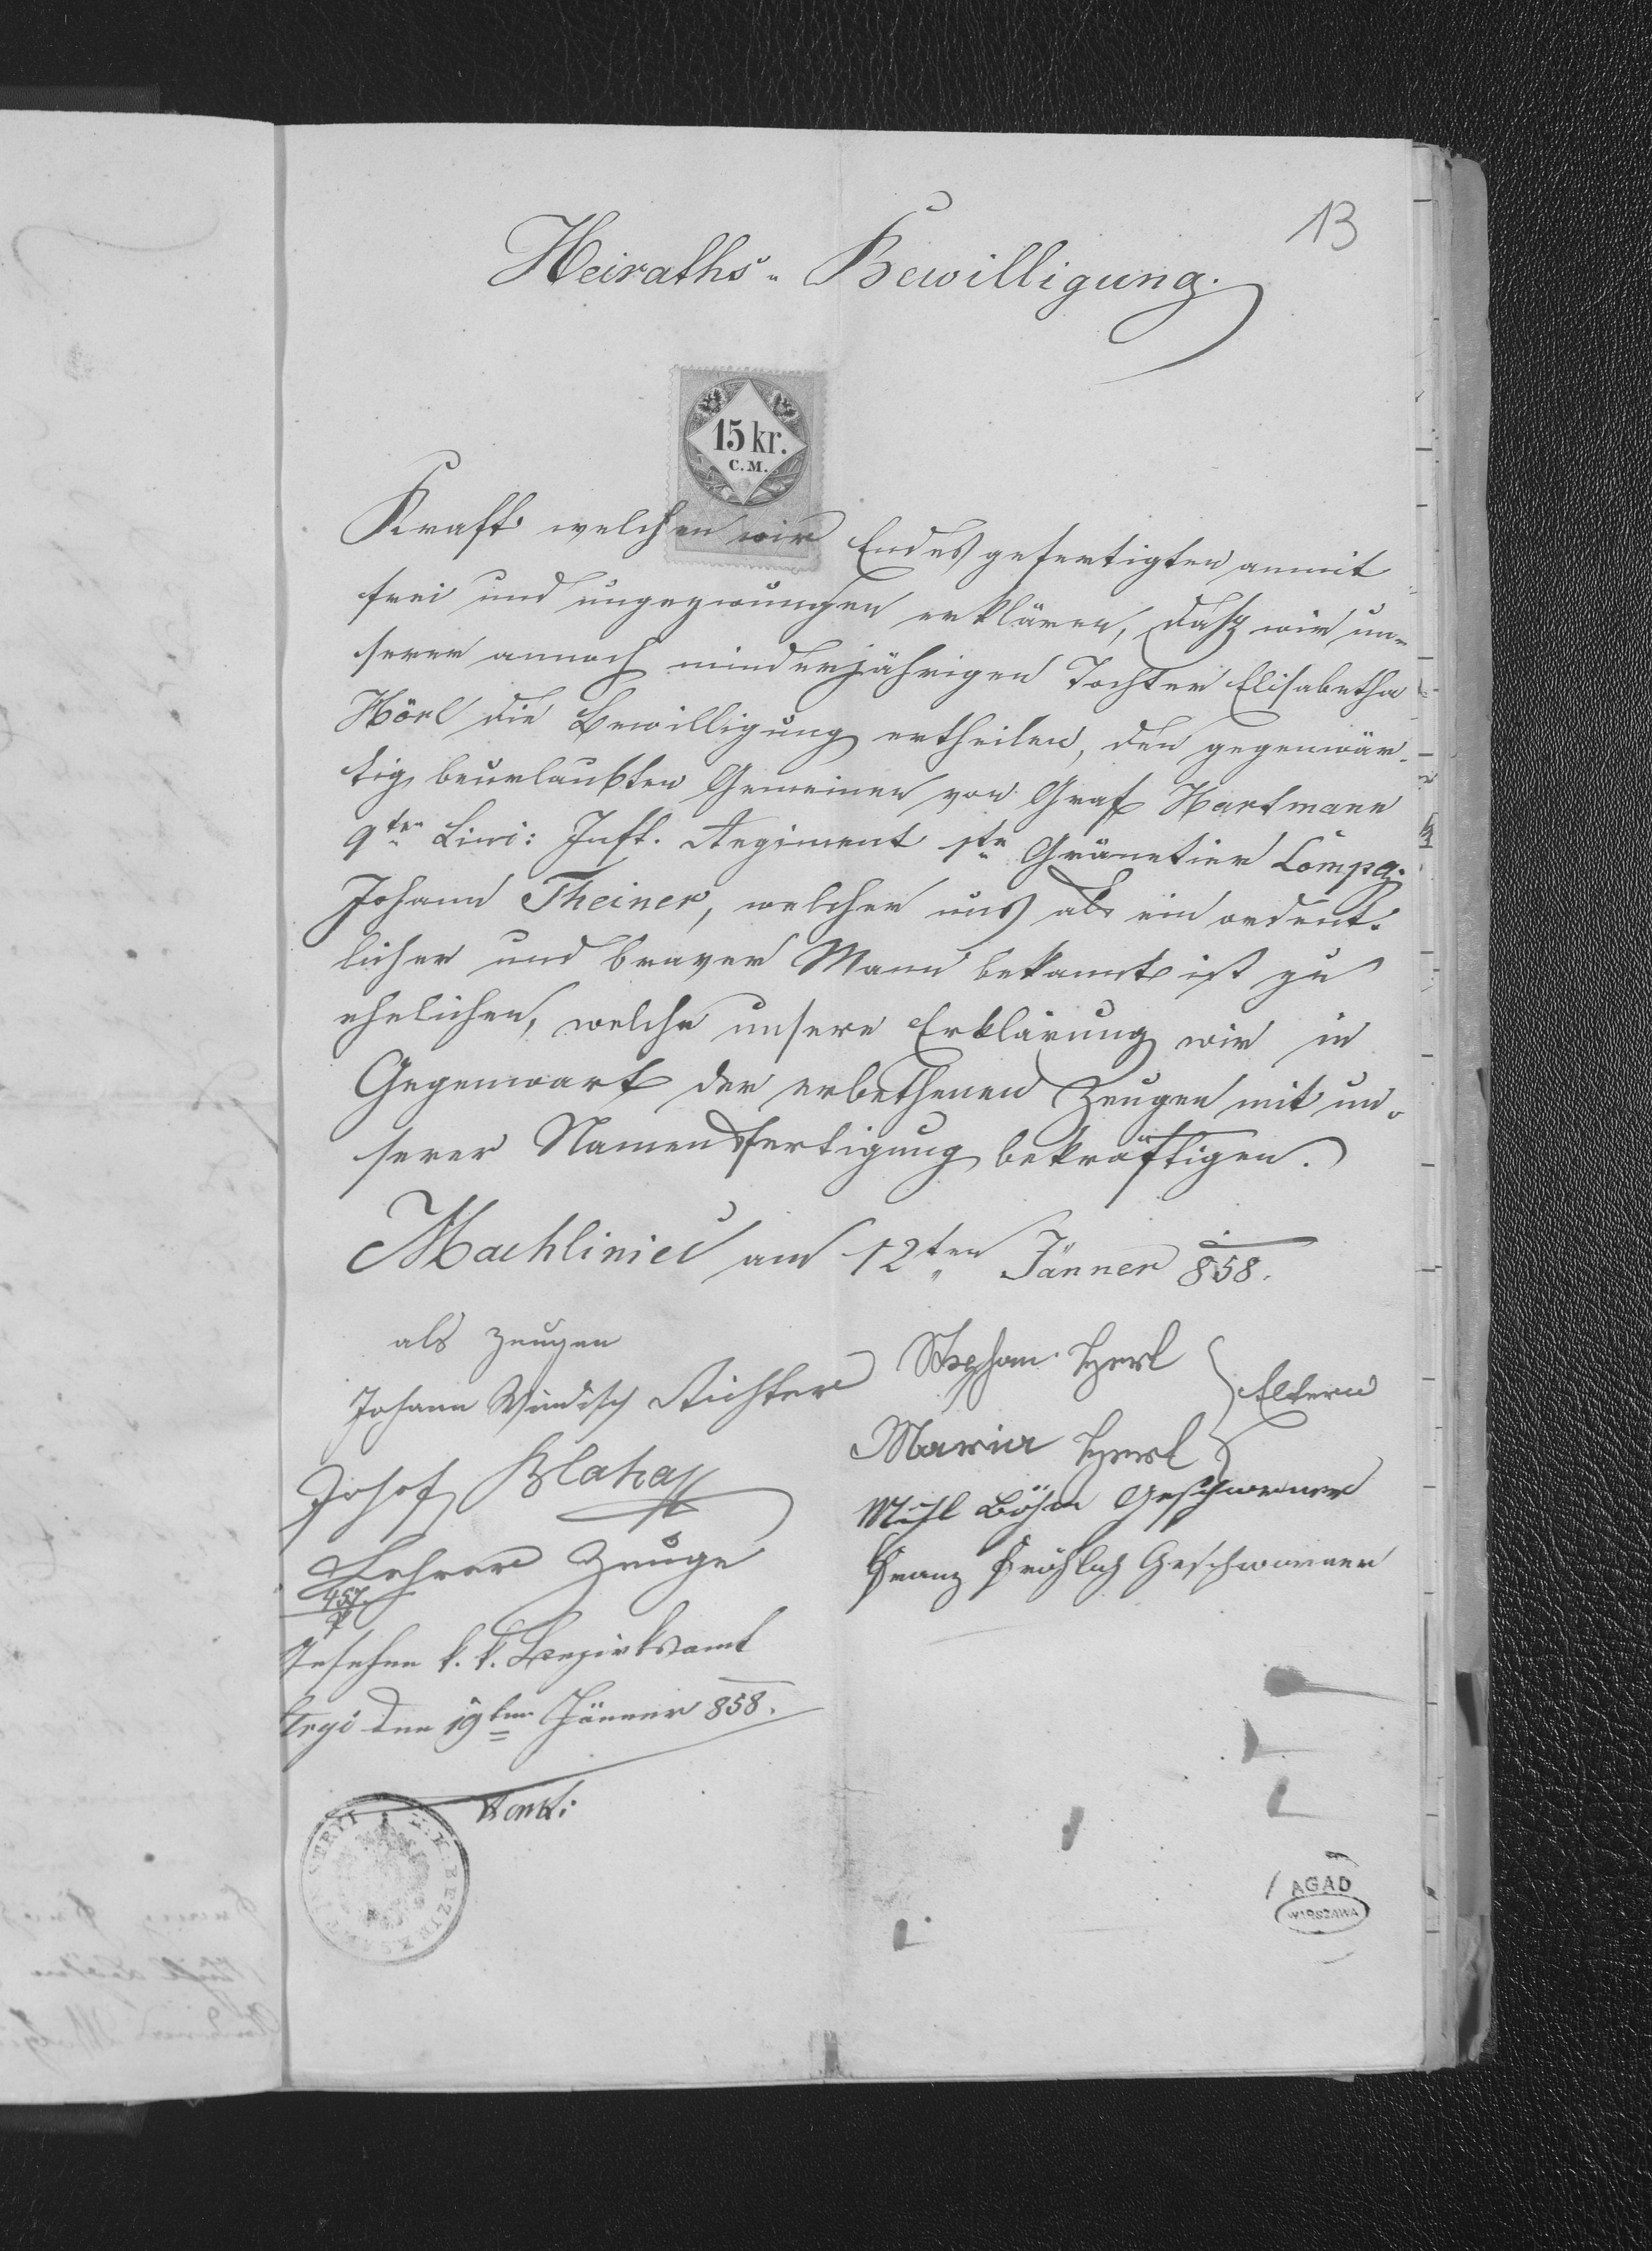 13
Heiraths- Bewilligung.
15 kr.
C.M.
Kraft welchen wir Endesgefertigten anmit
frei und ungezwungen erklären, daß wir un-
serer annoch minderjährigen Tochter Elisabetha
Hörl die Bewilligung ertheilen, den gegenwär-
tig beurlaubten Gemeinen von Graf Hartmann
9ten Lini: Inft. Regiment 1te Gränetier Compa:
Johann Theiner, welcher uns als ein ordent-
licher und braver Mann bekannt ist zu
ehelichen, welche unsere Erklärung wir in
Gegenwart der erbethenen Zeugen mit un-
serer Namensfertigung bekräftigen.
Machliniec am 12ten Jänner 858.
als Zeugen
Johann Windisch Richter
Josef Blaha
Lehrer Zeuge
Stephan Herl
Maria Herl
Eltern
Michl Böhm Geschworner
Franz Fröhlich Geschworner
457
Gesehen k. k. Bezirksamt
Stryi den 19ten Jänner 858.
K. K. BEZIRKSAMT IN STRYI
AGAD
WARSZAWA